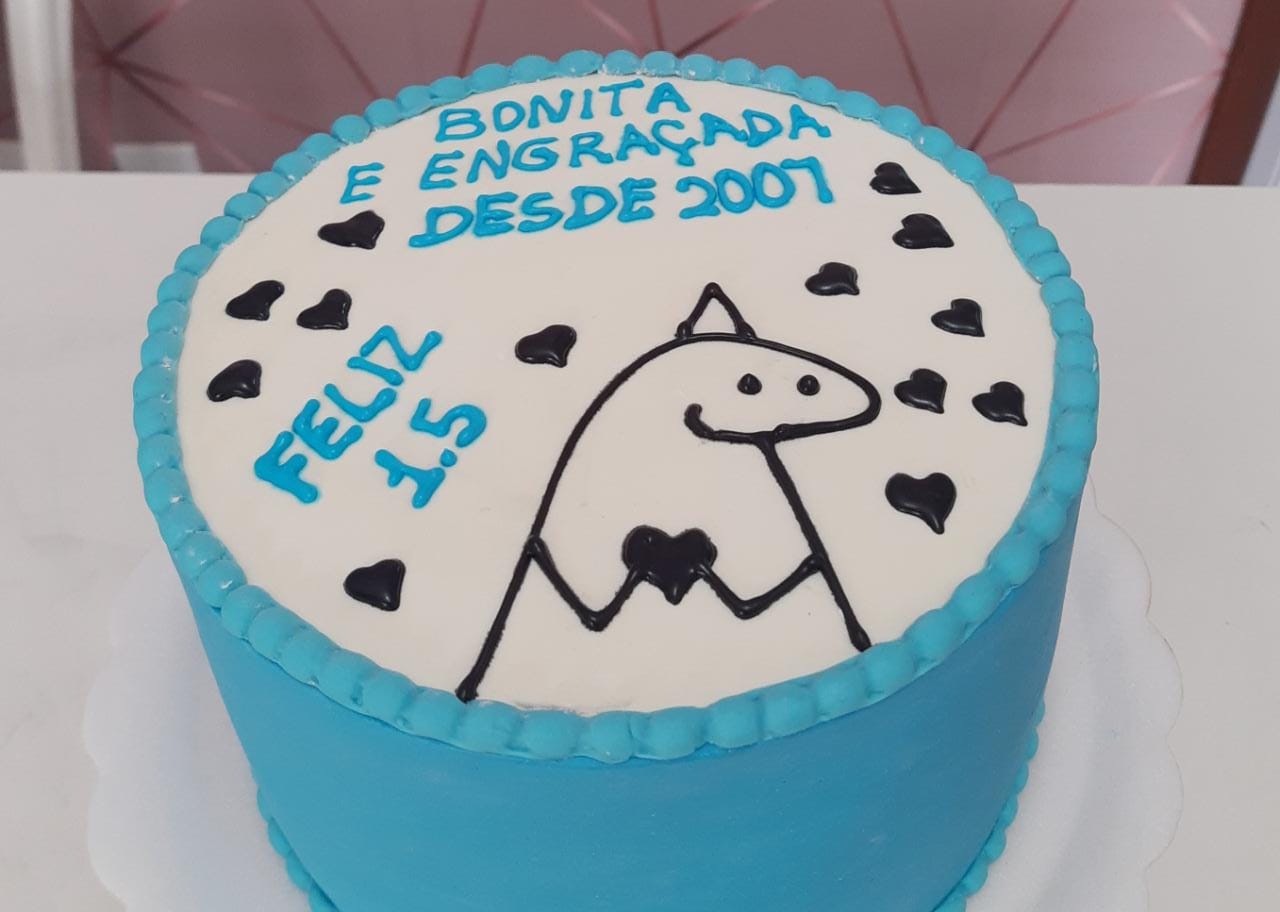 BONITA
E ENGRAÇADA
DESDE 2007
FELIZ
1.5